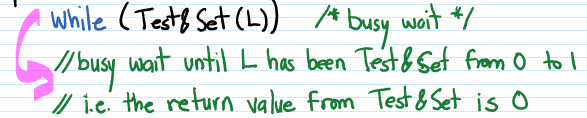 While (Test&Set(L)) /* busy wait */
// busy wait until L has been Test&Set from 0 to 1
// i.e. the return value from Test&Set is 0